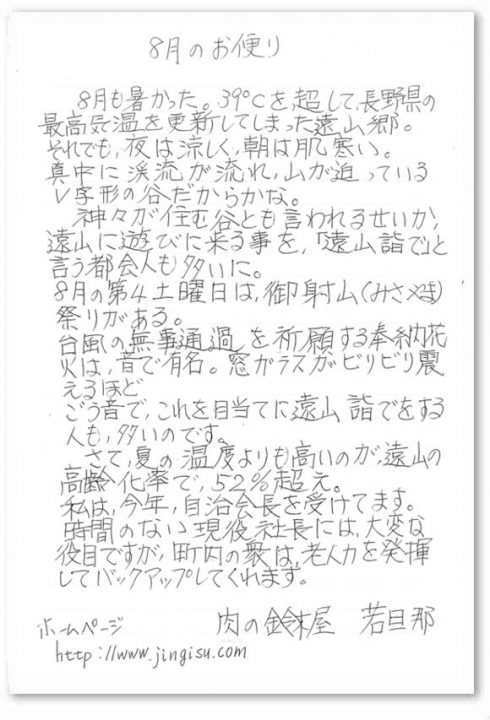 8月のお便り
8月も暑かった。39°Cを超して、長野県の
最高気温を更新してしまった遠山郷。
それでも、夜は涼しく、朝は肌寒い。
真中に渓流が流れ、山が迫っている
V字形の谷だからかな。
神々が住む谷とも言われるせいか、
遠山に遊びに来る事を、「遠山詣で」と
言う都会人も多いに。
8月の第4土曜日は、御射山(みさやま)
祭りがある。
台風の無事通過を祈願する奉納花
火は、音で有名。窓ガラスがビリビリ震
えるほど
ごう音で、これを目当てに遠山詣でをする
人も、多いのです。
さて、夏の温度よりも高いのが、遠山の
高齢化率で、52%超え。
私は、今年、自治会長を受けてます。
時間のない現役社長には、大変な
役目ですが、町内の衆は、老人力を発揮
してバックアップしてくれます。
肉の鈴木屋 若旦那
ホームページ
http://www.jingisu.com